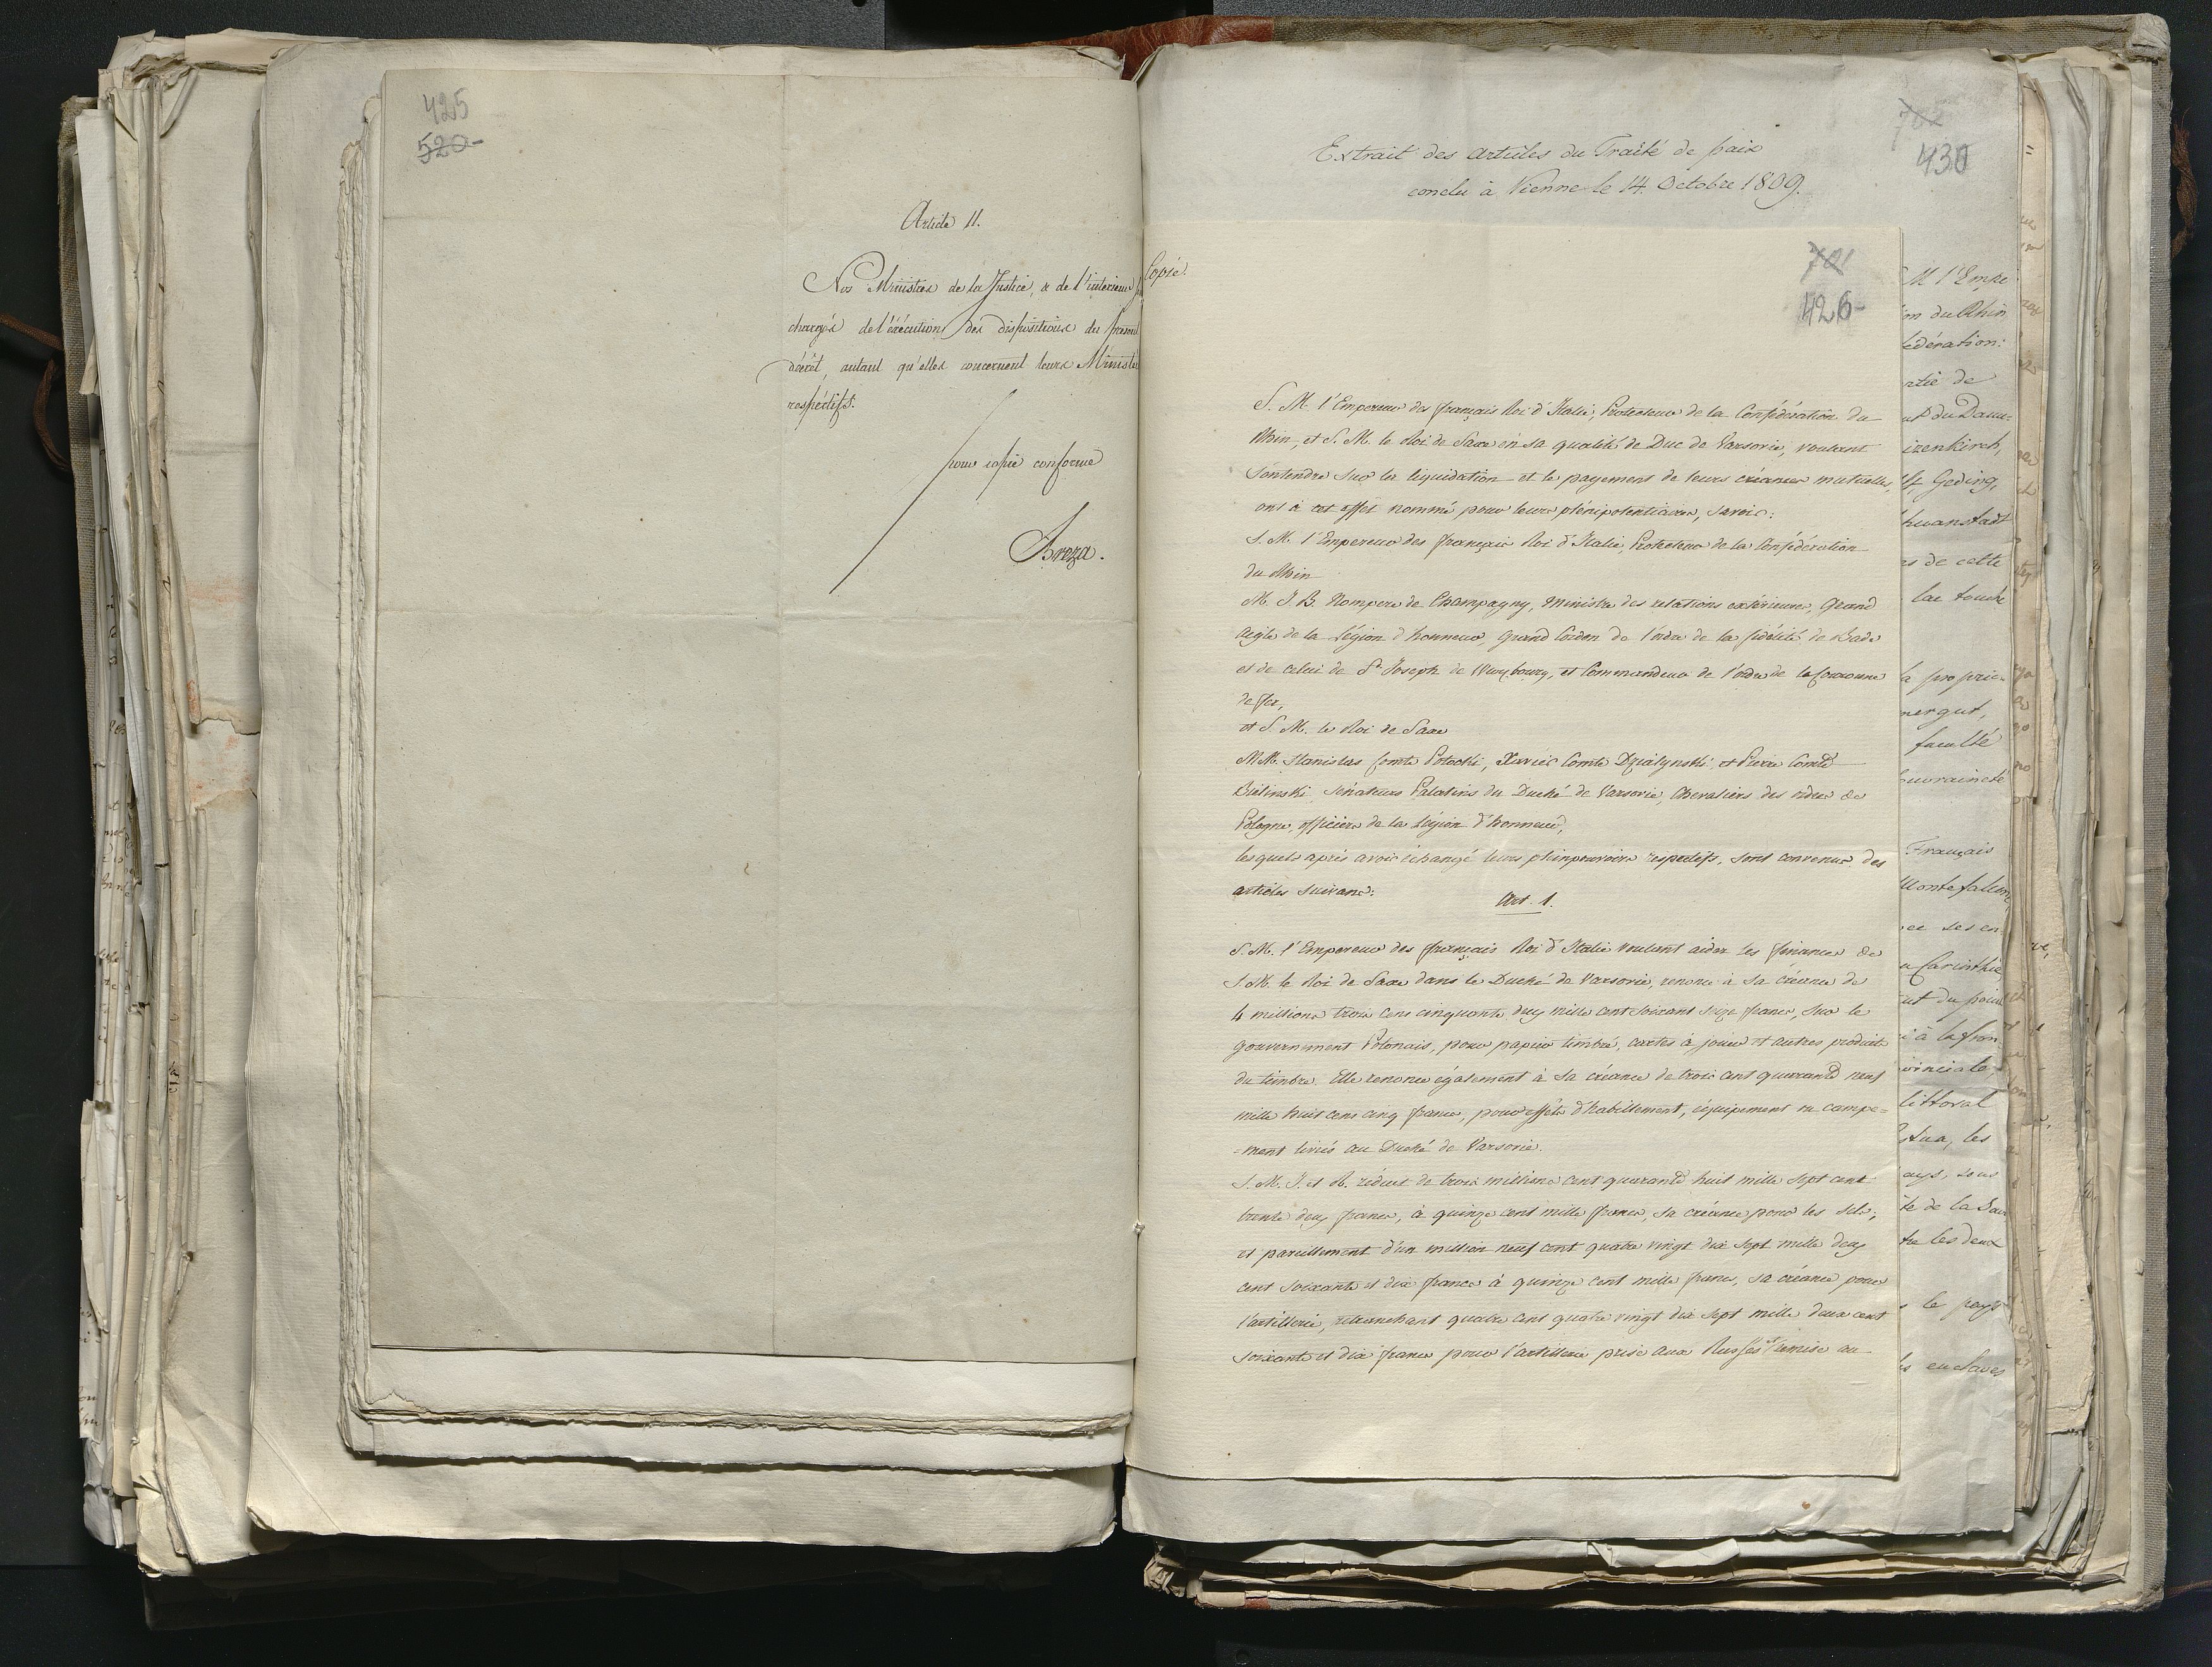 425
520
Article 11.
Nos Ministres de la Justice, & de l'interieur
chargés de l'éxécution des dispositions du present
décrêt, autant qu'elles concernent leurs Ministè
respéctifs.
pour copie conforme
Breza.
702
430
Extrait des articles du Traité de paix
conclu à Vienne le 14. Octobre 1809.
Copie.
701
426
S. M. l'Empereur des français Roi d'Italie, Protecteur de la Confédération du
Rhin, et S. M. le Roi de Saxe en sa qualité de Duc de Varsovie, voulant
s'entendre sur la liquidation et le payement de leurs créances mutuelles,
ont à cet effet nommé pour leurs plénipotentiaires, savoir:
S. M. l'Empereur des français Roi d'Italie, Protecteur de la Confédération
du Rhin
M. J. B. Nompere de Champagny, Ministre des relations extérieures, Grand
Aigle de la Légion d'honneur, grand Cordon de l'ordre de la fidélité de Bade
et de celui de St Joseph de Wurzbourg, et Commandeur de l'ordre de la Couronne
de fer,
et S. M. le Roi de Saxe
MM. Stanislas Comte Potocki, Xavier Comte Dzialynski, et Pierre Comte
Bielinski, Sénateurs Palatins du Duché de Varsovie, Chevaliers des ordres de
Pologne, officiers de la Légion d'honneur,
lesquels après avoir échangé leurs pleinpouvoirs respectifs, sont convenus des
articles suivans:
Art. 1.
S. M. l'Empereur des français Roi d'Italie voulant aider les finances de
S. M. le Roi de Saxe dans le Duché de Varsovie, renonce à sa créance de
4 millions trois cens cinquante deux mille cent soixant seize francs, sur le
gouvernement Polonais, pour papier timbré, cartes à jouer et autres produits
du timbre. Elle renonce également à sa créance de trois cent quarante neuf
mille huit cens cinq francs, pour effets d'habillement, équipement ou campe=
=ment livrés au Duché de Varsovie.
S. M. I. et R. réduit de trois millions cent quarante huit mille sept cent
trente deux francs, à quinze cent mille francs, sa créance pour les sels;
et pareillement d'un million neuf cent quatre vingt dix sept mille deux
cent soixante et dix francs à quinze cent mille francs, sa créance pour
l'artillerie, retranchant quatre cent quatre vingt dix sept mille deux cent
soixante et dix francs pour l'artillerie prise aux Russes et remise au
M l'Empe
on du Rhin
édération:
rtie de
du Danu=
izenkirch,
Geding,
hwanstadt
es de cette
lac touche
la proprié=
nergut,
faculté
ouveraineté
Français
Montefalcone,
ses en
Carinthie
ut du point
à la fron
vinciale
littoral
stua, les
ays, sous
te de la Save
tre les deux
le pays
s enclaves